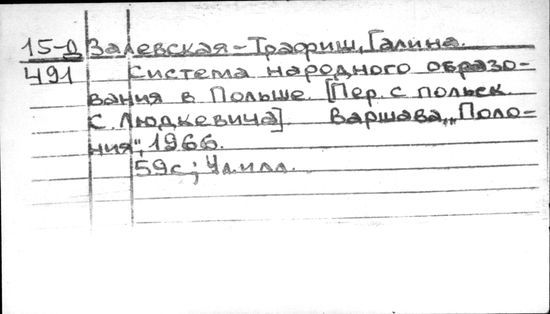 15-Д Залевская-Трафиш, Галина.
491 Система народного образо-
вания в Польше. [Пер. с польск.
С. Людкевича] Варшава, „Поло-
ния", 1966.
59с; 4л.илл.